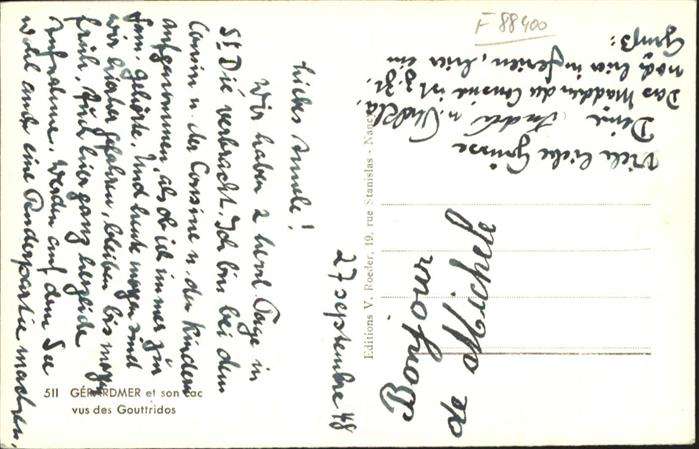 27 septembre 48
Liebes Amele!
Wir haben 2 Tage in
St Dié verbracht. Ich bin bei dem
Cousin u. der Cousine u. den Kindern
aufgenommen, als ob ich immer zur
Fam. gehörte. Und heute morgen sind
wir hierher gefahren, bleiben bis morgen
früh. Auch hier ganz herzliche
Aufnahme. Werden auf dem See
wohl auch eine Ruderpartie machen.
Viele liebe Grüsse
Deine
Das Mädchen der Cousine ist z. Zt.
noch hier in Ferien, hier ein
Gruß:
Bonjour
de Michele
F 88400
Editions V. Roeder, 19, rue Stanislas - Nancy
511 GÉRARDMER et son Lac
vus des Gouttridos